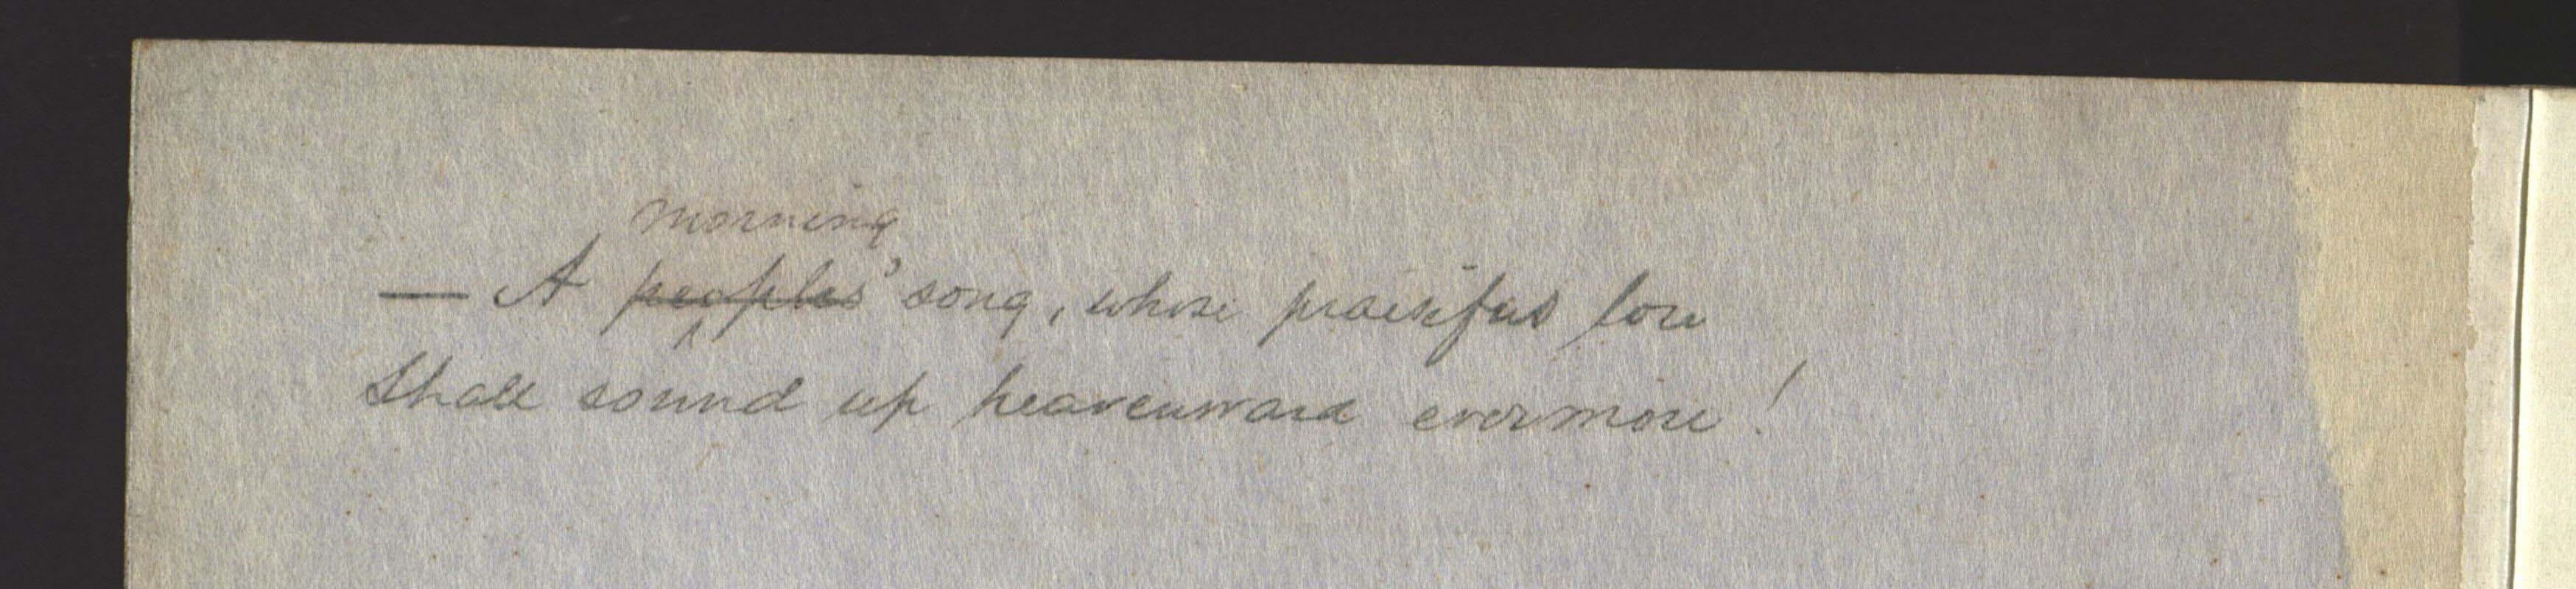 morning
— A peoples' song, whose praiseful lore
Shall sound up heavenward evermore!